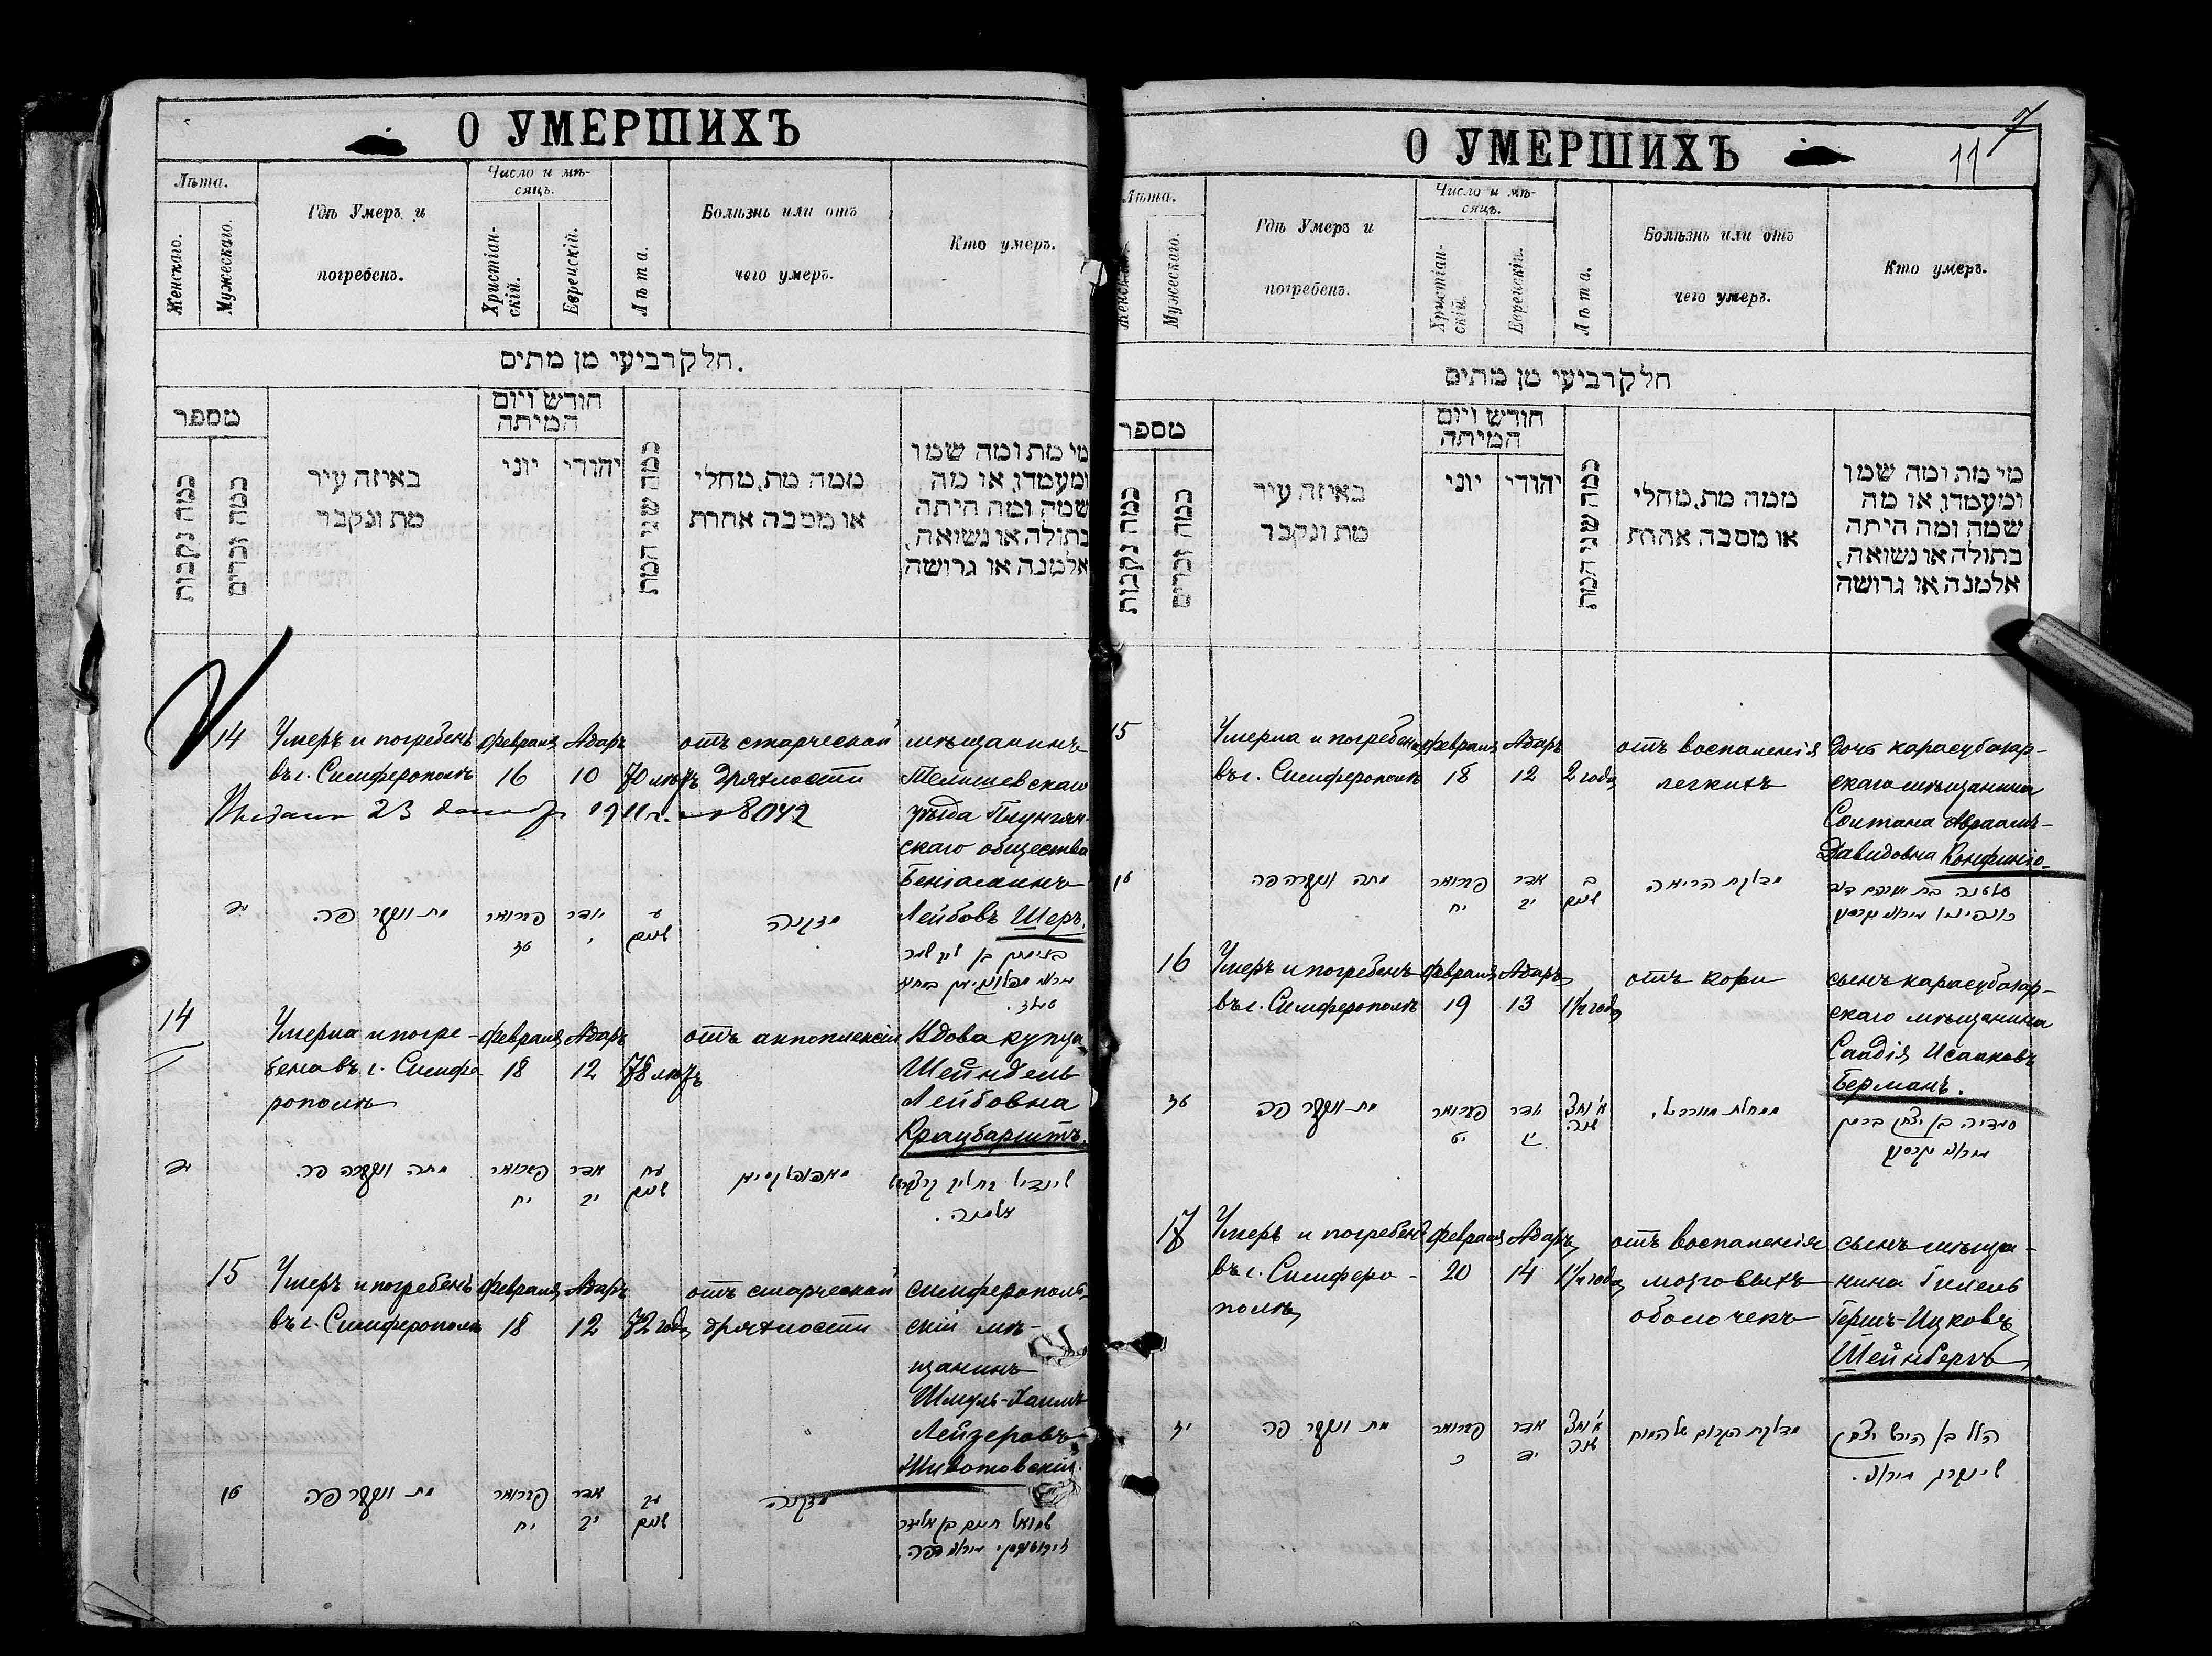 О УМЕРШИХЪ
Лѣта.
Женскаго.
Мужескаго.
Гдѣ Умеръ и
погребенъ.
Число и мѣ-
сяцъ.
Христіан-
скій.
Еврейскій.
Лѣта.
Болѣзнь или отъ
чего умеръ.
Кто умеръ.
חלק רביעי מן מתים.
מספר
כמה נקבות
כמה זכרים
באיזה עיר
מת ונקבר
חודש ויום
המיתה
יוני
יהודי
כמה שני המת
ממה מת, מחלי
או מסבה אחרת
מי מת ומה שמו
ומעמדו, או מה
שמה ומה היתה
בתולה או נשואה,
אלמנה או גרושה
14
Умеръ и погребенъ
въ г. Симферополѣ
февраля
16
Адаръ
10
70 лѣтъ
отъ старческой
дряхлости
мѣщанинъ
Тельшевскаго
уѣзда Плунгян-
скаго общества
Беніаминъ
Лейбовъ Шеръ.
23 1911 г. № 8042
יד
מת ונקבר פה.
פברואר
טז
אדר
י
ע
שנים
מזקנה
14
Умерла и погре-
бена въ г. Симфе
рополѣ
февраля
18
Адаръ
12
78 лѣтъ
отъ апоплексіи
Вдова купца
Шейндель
Лейбовна
יד
מתה ונקברה פה.
פברואר
יח
אדר
יב
עח
שנים
אלמנה.
15
Умеръ и погребенъ
въ г. Симферополѣ
февраля
18
Адаръ
12
72 года
отъ старческой
дряхлости
симферополь-
скій мѣ-
щанинъ
Шмуль-Хаимъ
Лейзеровъ
Животовскій.
טו
מת ונקבר פה
פברואר
יח
אדר
יב
עב
שנים
מזקנה
שמואל חיים בן אליעזר
О УМЕРШИХЪ
7
11
Лѣта.
Женскаго.
Мужескаго.
Гдѣ Умеръ и
погребенъ.
Число и мѣ-
сяцъ.
Христіан-
скій.
Еврейскій.
Лѣта.
Болѣзнь или отъ
чего умеръ.
Кто умеръ.
חלק רביעי מן מתים
מספר
כמה נקבות
כמה זכרים
באיזה עיר
מת ונקבר
חודש ויום
המיתה
יוני
יהודי
כמה שני המת
ממה מת, מחלי
או מסבה אחרת
מי מת ומה שמו
ומעמדו, או מה
שמה ומה היתה
בתולה או נשואה,
אלמנה או גרושה
15
Умерла и погребена
въ г. Симферополѣ
февраля
18
Адаръ
12
2 года
отъ воспаленія
легкихъ
дочь карасубазар-
скаго мѣщанина
Султана Авраамъ-
Давидовна Конфино.
טו
מתה ונקברה פה
פברואר
יח
אדר
יב
ב
שנים
מדלקת הריאה
16
Умеръ и погребенъ
въ г. Симферополѣ
февраля
19
Адаръ
13
1½ года
отъ кори
сынъ карасубазар-
скаго мѣщанина
Саадія Исааковъ
Берманъ.
טז
מת ונקבר פה
פברואר
יט
אדר
יג
א' וחצי
שנה
סעדיה בן יצחק ברמן
17
Умеръ и погребенъ
въ г. Симферо-
полѣ
февраля
20
Адаръ
14
1½ года
отъ воспаленія
мозговыхъ
оболочекъ
сынъ мѣща-
нина Гилель
Гершъ-Ицковъ
Шейнбергъ.
יז
מת ונקבר פה
פברואר
כ
אדר
יד
א' וחצי
שנה
מדלקת הקרום של המוח
הלל בן הירש יצחק